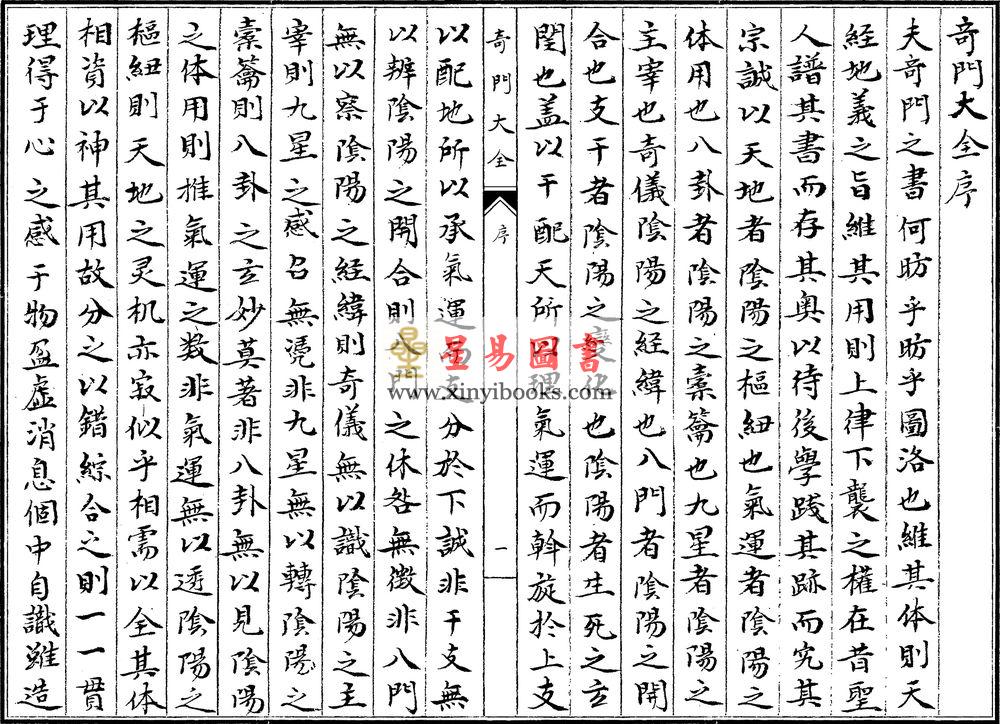 奇門大全序
夫奇門之書何昉乎昉乎圖洛也維其体則天
經地義之旨維其用則上律下襲之權在昔聖
人譜其書而存其奥以待後學踐其跡而究其
宗誠以天地者陰陽之樞紐也氣運者陰陽之
体用也八卦者陰陽之橐籥也九星者陰陽之
主宰也奇儀陰陽之經緯也八門者陰陽之開
合也支干者陰陽之變化也陰陽者生死之玄
閏也盖以干配天所以理氣運而斡旋於上支
奇門大全 序 一
以配地所以承氣運而支分於下誠非干支無
以辨陰陽之開合則八門之休咎無徵非八門
無以察陰陽之經緯則奇儀無以識陰陽之主
宰則九星之感召無凴非九星無以轉陰陽之
橐籥則八卦之玄妙莫著非八卦無以見陰陽
之体用則推氣運之数非氣運無以透陰陽之
樞紐則天地之灵机亦寂似乎相需以全其体
相資以神其用故分之以錯綜合之則一一貫
理得于心之感于物盈虚消息個中自識雖造
星易圖書
www.xinyibooks.com